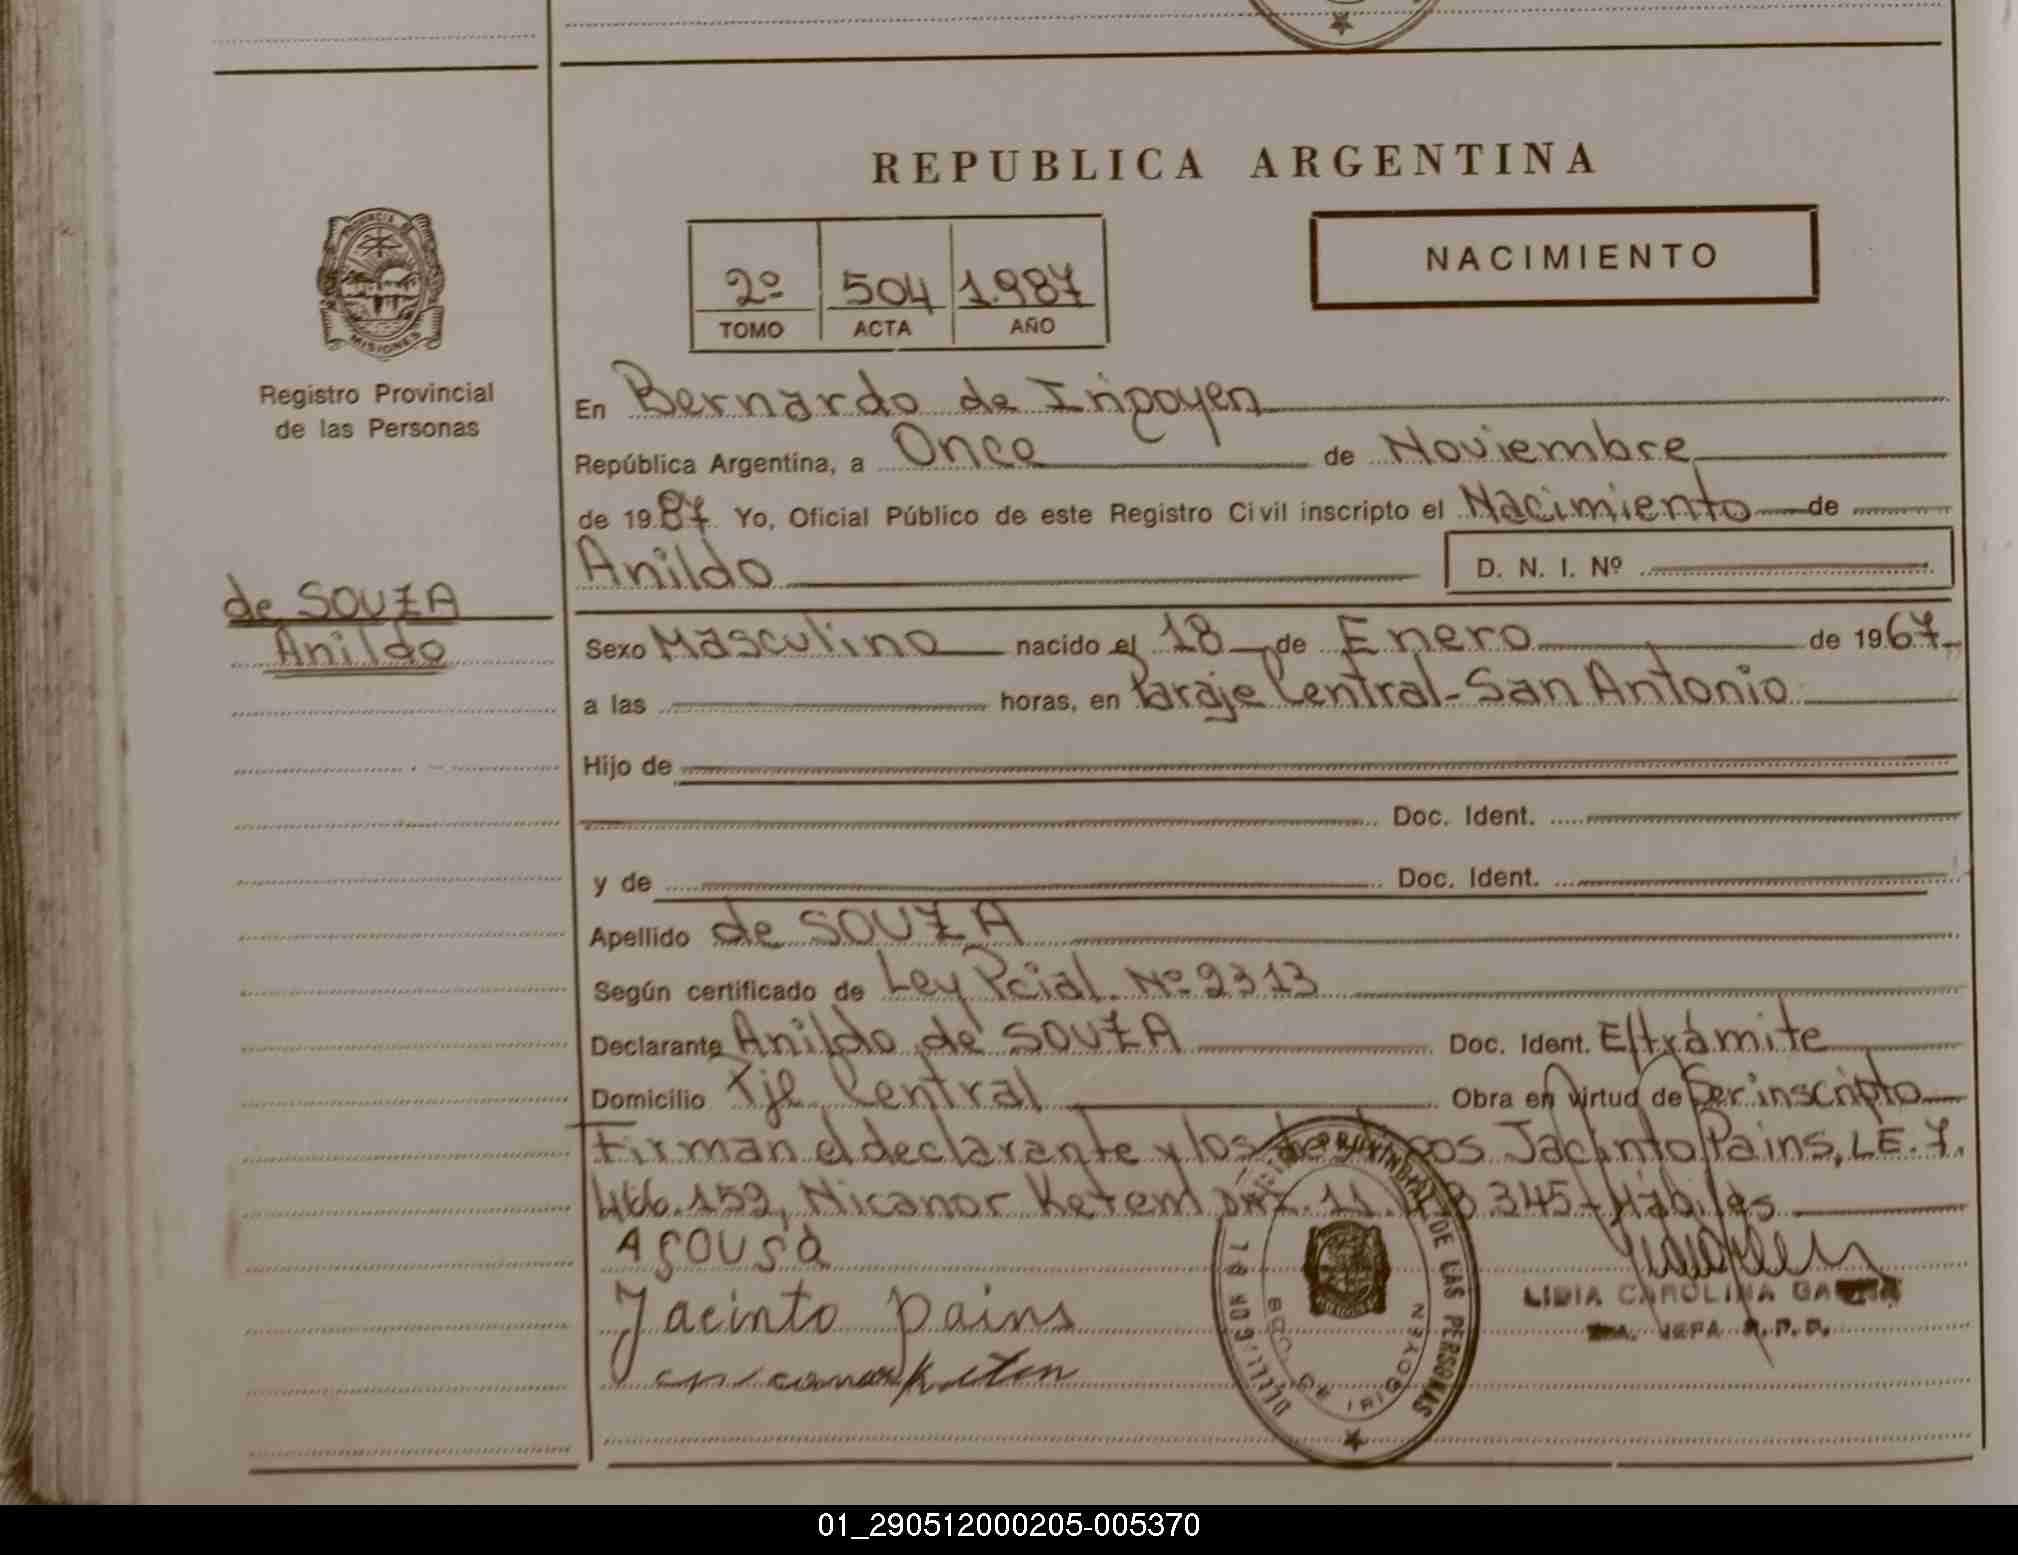 REPUBLICA ARGENTINA
PROVINCIA
MISIONES
Registro Provincial
de las Personas
2º 504 1.987
TOMO ACTA AÑO
NACIMIENTO
En Bernardo de Irigoyen
República Argentina, a Once de Noviembre
de 1987 Yo, Oficial Público de este Registro Civil inscripto el Nacimiento de
Anildo D. N. I. Nº
de SOUZA
Anildo
Sexo Masculino nacido el 18 de Enero de 1967
a las horas, en Paraje Central-San Antonio
Hijo de
Doc. Ident.
y de Doc. Ident.
Apellido de SOUZA
Según certificado de Ley Pcial. Nº 2313
Declarante Anildo de SOUZA Doc. Ident. E/trámite
Domicilio Pje Central Obra en virtud de Ser inscripto
Firman el declarante y los testigos Jacinto Pains, LE. 7.
466.152, Nicanor Ketem DNI. 11. 345-Hábiles
A SOUSA
Jacinto pains
LIDIA CAROLINA
JEFA R.P.P.
PROVINCIAL DE LAS PERSONAS
BDO DE IRIGOYEN
01_290512000205-005370